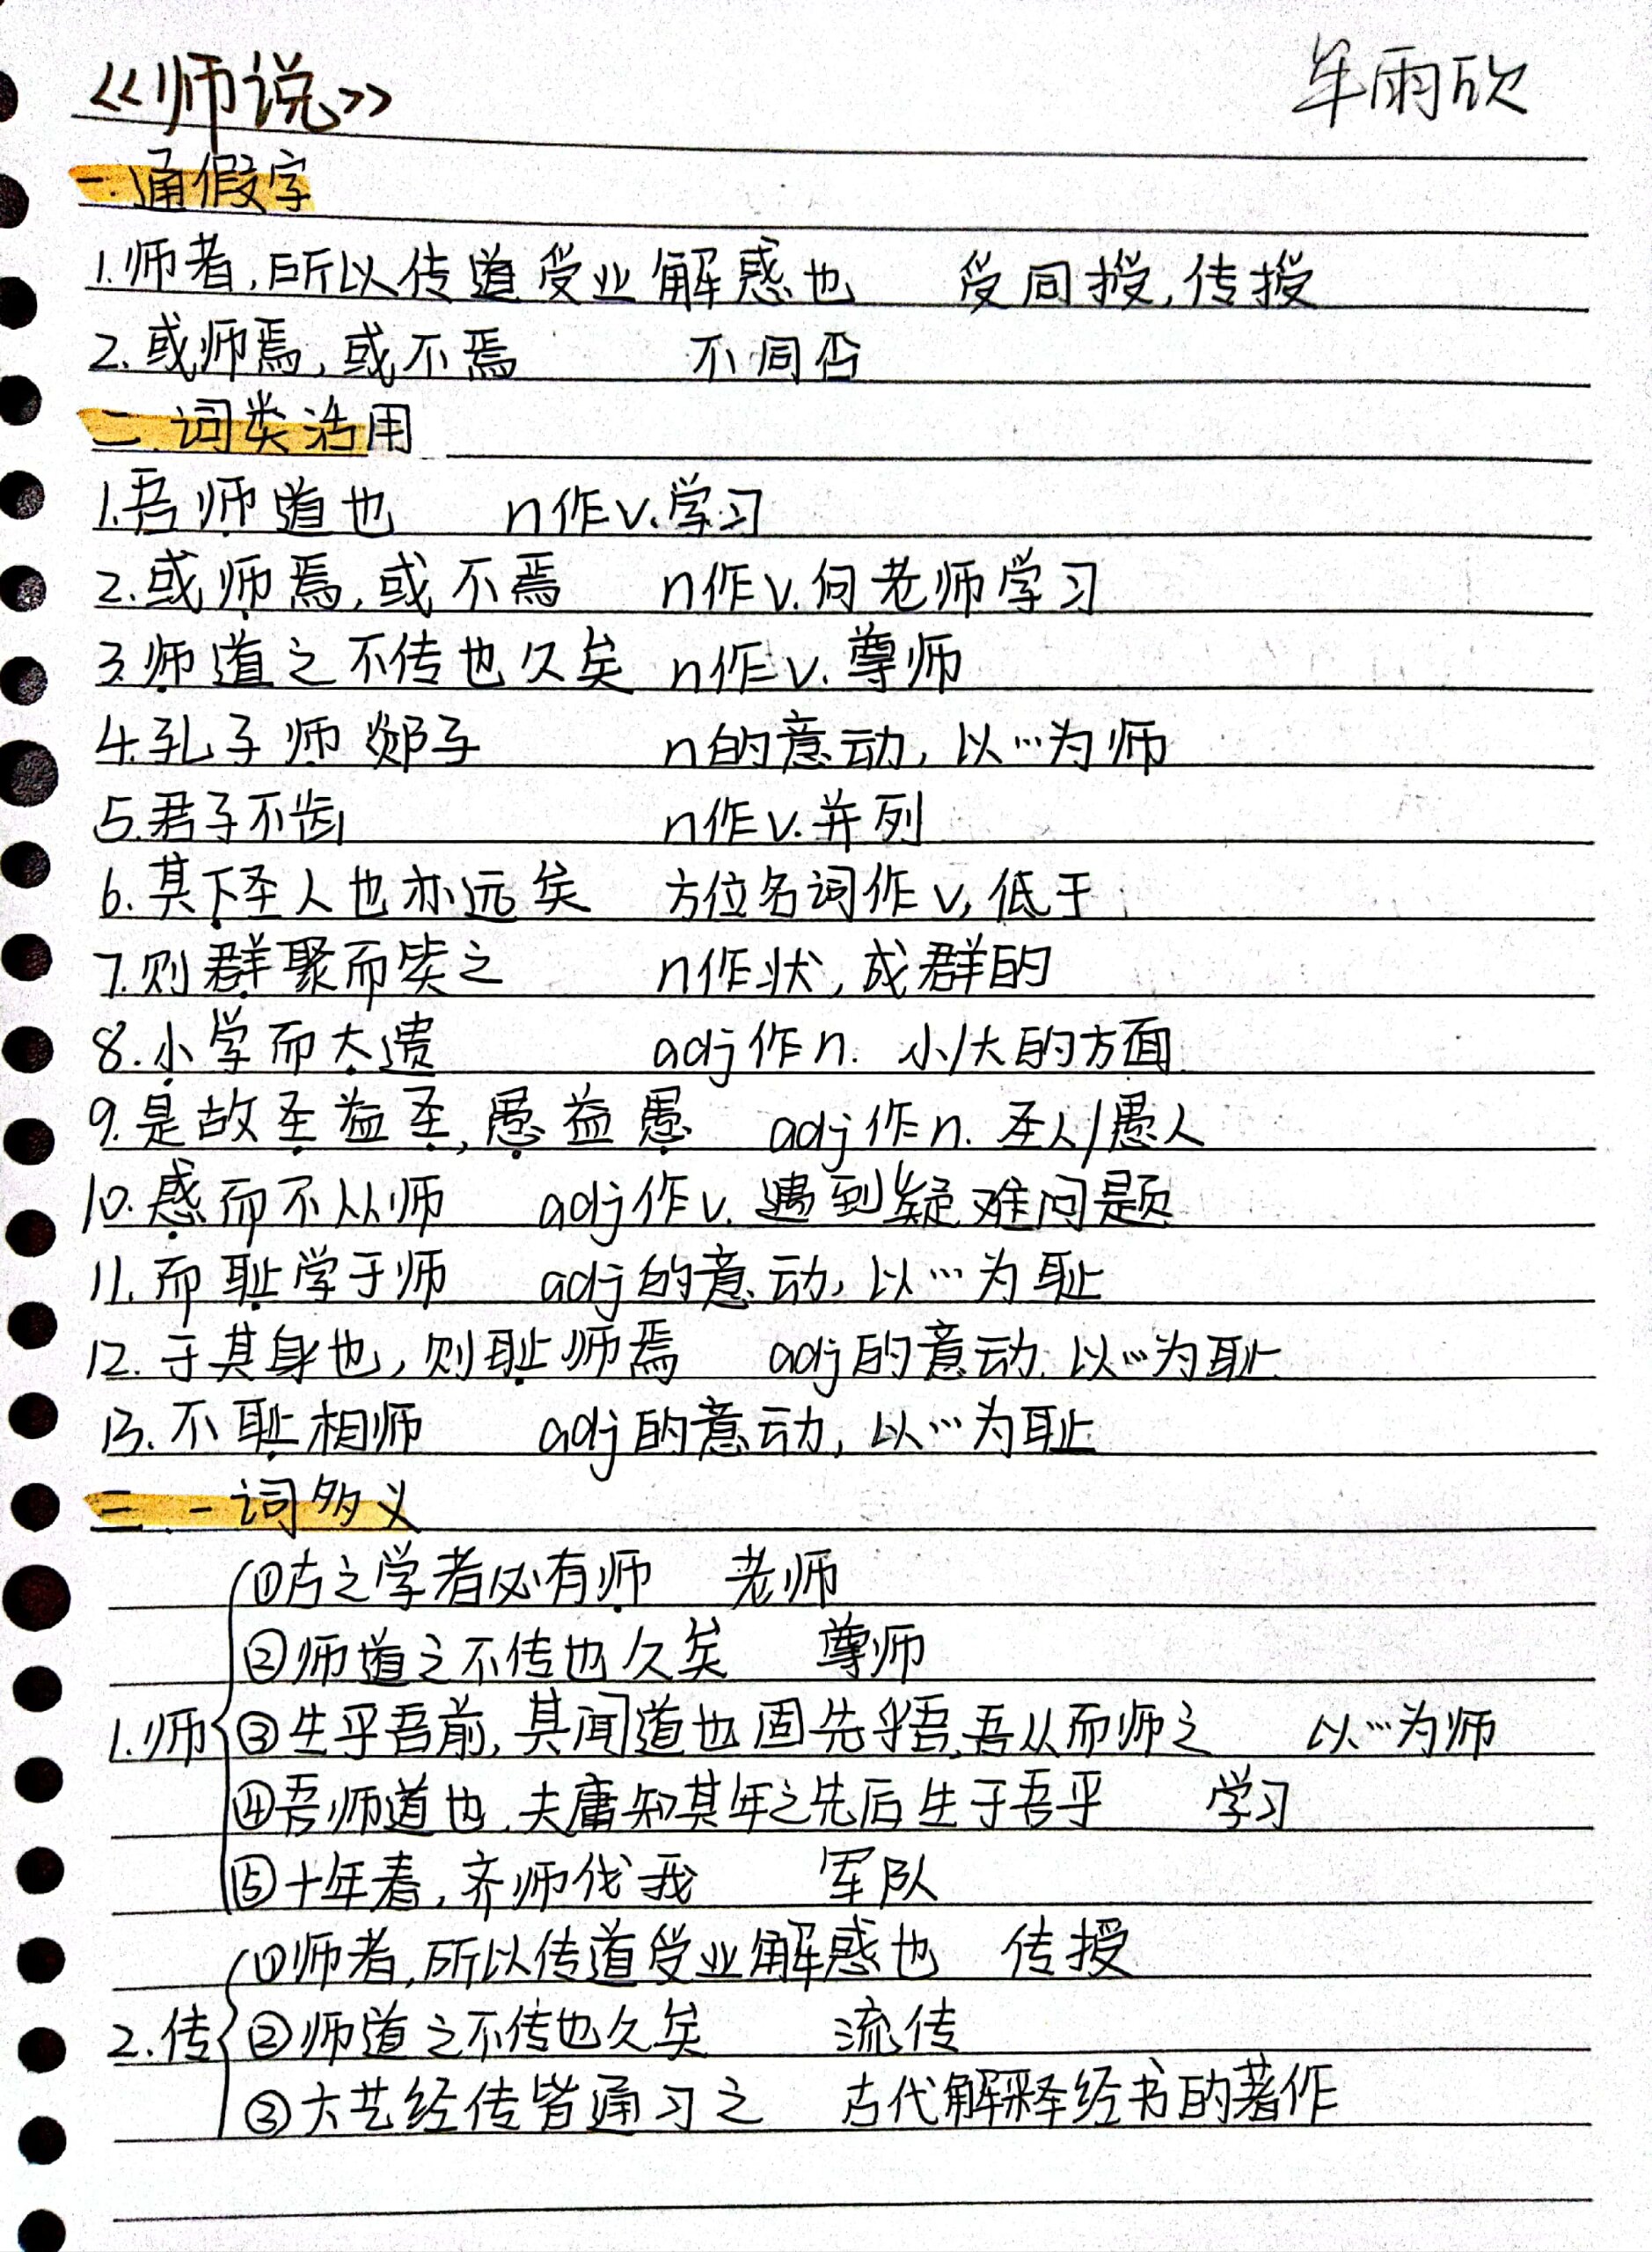 《师说》 牟雨欣
一.通假字
1.师者,所以传道受业解惑也 受同授,传授
2.或师焉,或不焉 不同否
二.词类活用
1.吾师道也 n作v.学习
2.或师焉,或不焉 n作v.向老师学习
3.师道之不传也久矣 n作v.尊师
4.孔子师郯子 n的意动,以…为师
5.君子不齿 n作v.并列
6.其下圣人也亦远矣 方位名词作v,低于
7.则群聚而笑之 n作状,成群的
8.小学而大遗 adj作n. 小/大的方面
9.是故圣益圣,愚益愚 adj作n. 圣人/愚人
10.惑而不从师 adj作v.遇到疑难问题
11.而耻学于师 adj的意动,以…为耻
12.于其身也,则耻师焉 adj的意动.以…为耻
13.不耻相师 adj的意动,以…为耻
三.一词多义
①古之学者必有师 老师
②师道之不传也久矣 尊师
1.师 ③生乎吾前,其闻道也固先乎吾,吾从而师之 以…为师
④吾师道也,夫庸知其年之先后生于吾乎 学习
⑤十年春,齐师伐我 军队
①师者,所以传道受业解惑也 传授
2.传 ②师道之不传也久矣 流传
③六艺经传皆通习之 古代解释经书的著作